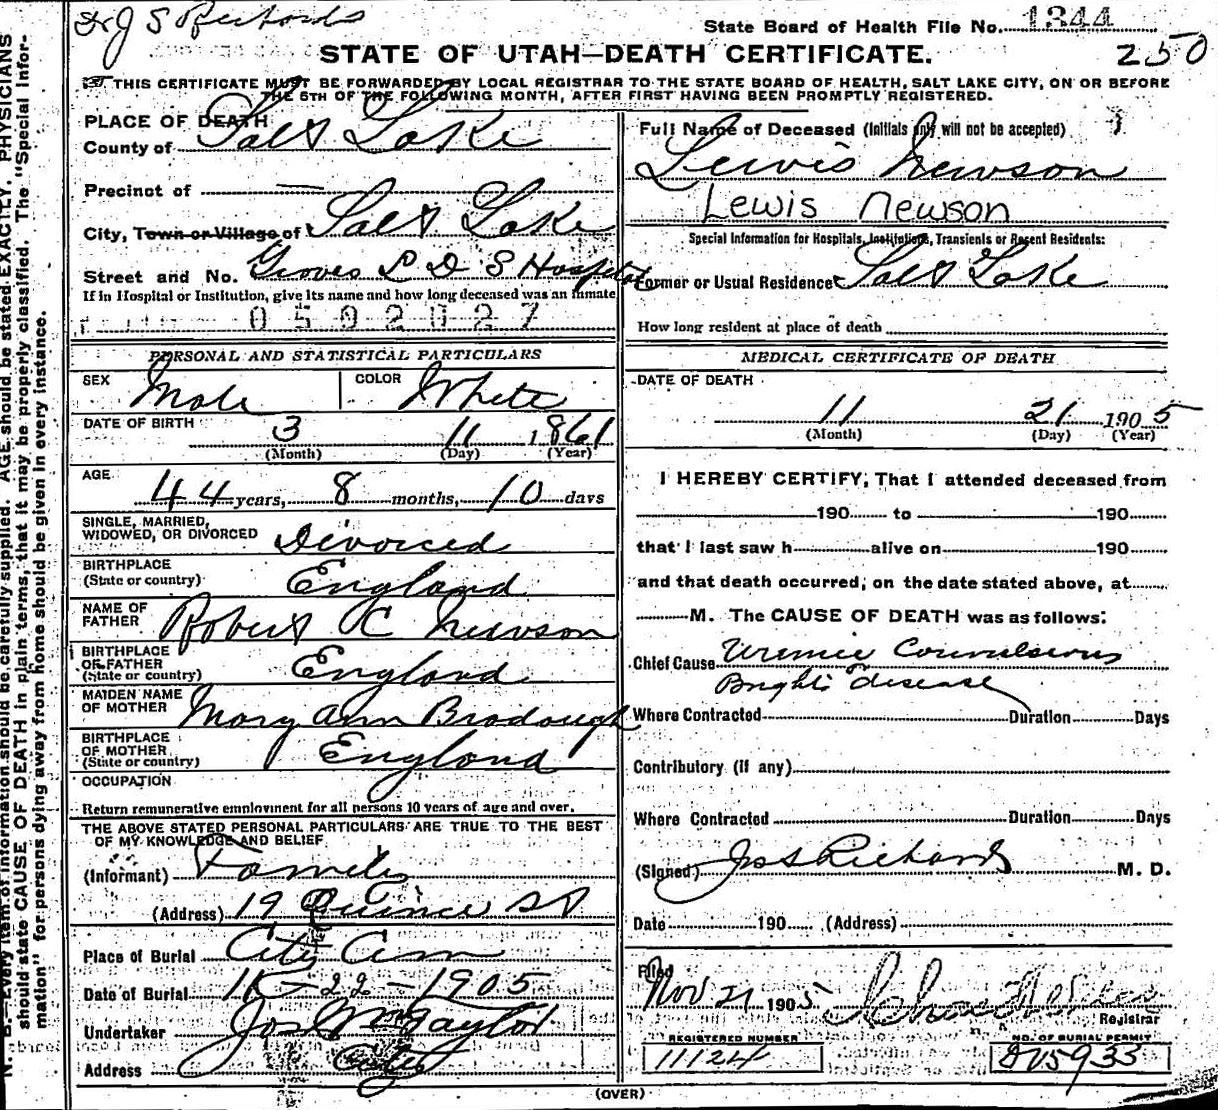 Dr J S Richards
State Board of Health File No. 1344
250
STATE OF UTAH—DEATH CERTIFICATE.
THIS CERTIFICATE MUST BE FORWARDED BY LOCAL REGISTRAR TO THE STATE BOARD OF HEALTH, SALT LAKE CITY, ON OR BEFORE
THE 5TH OF THE FOLLOWING MONTH, AFTER FIRST HAVING BEEN PROMPTLY REGISTERED.
PLACE OF DEATH
County of Salt Lake
Precinct of —
City, Town or Village of Salt Lake
Street and No. Groves L D S Hospital
If in Hospital or Institution, give its name and how long deceased was an inmate
0502027
PERSONAL AND STATISTICAL PARTICULARS
SEX Male COLOR White
DATE OF BIRTH 3 11 1861
(Month) (Day) (Year)
AGE 44 years, 8 months, 10 days
SINGLE, MARRIED,
WIDOWED, OR DIVORCED Divorced
BIRTHPLACE
(State or country) England
NAME OF
FATHER Robert C Newson
BIRTHPLACE
OF FATHER
(State or country) England
MAIDEN NAME
OF MOTHER Mary Ann Bradough
BIRTHPLACE
OF MOTHER
(State or country) England
OCCUPATION
Return remunerative employment for all persons 10 years of age and over.
THE ABOVE STATED PERSONAL PARTICULARS ARE TRUE TO THE BEST
OF MY KNOWLEDGE AND BELIEF
(Informant) Family
(Address) 19 Quince St
Place of Burial City Cem
Date of Burial 11-22-1905
Undertaker Jos Wm Taylor
Address City
Full Name of Deceased (Initials only will not be accepted)
Lewis Newson
Lewis Newson
Special Information for Hospitals, Institutions, Transients or Recent Residents:
Former or Usual Residence Salt Lake
How long resident at place of death
MEDICAL CERTIFICATE OF DEATH
DATE OF DEATH
11 21 1905
(Month) (Day) (Year)
I HEREBY CERTIFY, That I attended deceased from
190 to 190
that I last saw h alive on 190
and that death occurred, on the date stated above, at
M. The CAUSE OF DEATH was as follows:
Chief Cause Uremic Convulsions
Brights disease
Where Contracted Duration Days
Contributory (if any)
Where Contracted Duration Days
(Signed) Jos S Richards M. D.
Date 190 (Address)
Filed
Nov 21 1905
Registrar
REGISTERED NUMBER
11124
NO. OF BURIAL PERMIT
(OVER)
N. B.—Every item of information should be carefully supplied. AGE should be stated EXACTLY. PHYSICIANS
should state CAUSE OF DEATH in plain terms, that it may be properly classified. The "Special Infor-
mation" for persons dying away from home should be given in every instance.